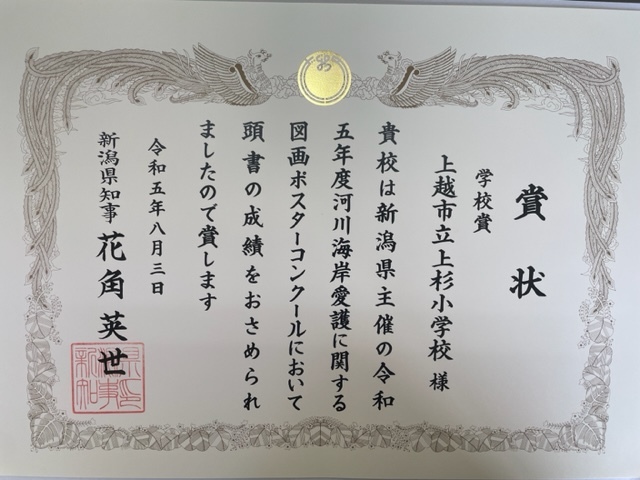 賞状
学校賞
上越市立上杉小学校 様
貴校は新潟県主催の令和
五年度河川海岸愛護に関する
図画ポスターコンクールにおいて
頭書の成績をおさめられ
ましたので賞します
令和五年八月三日
新潟県知事 花角英世